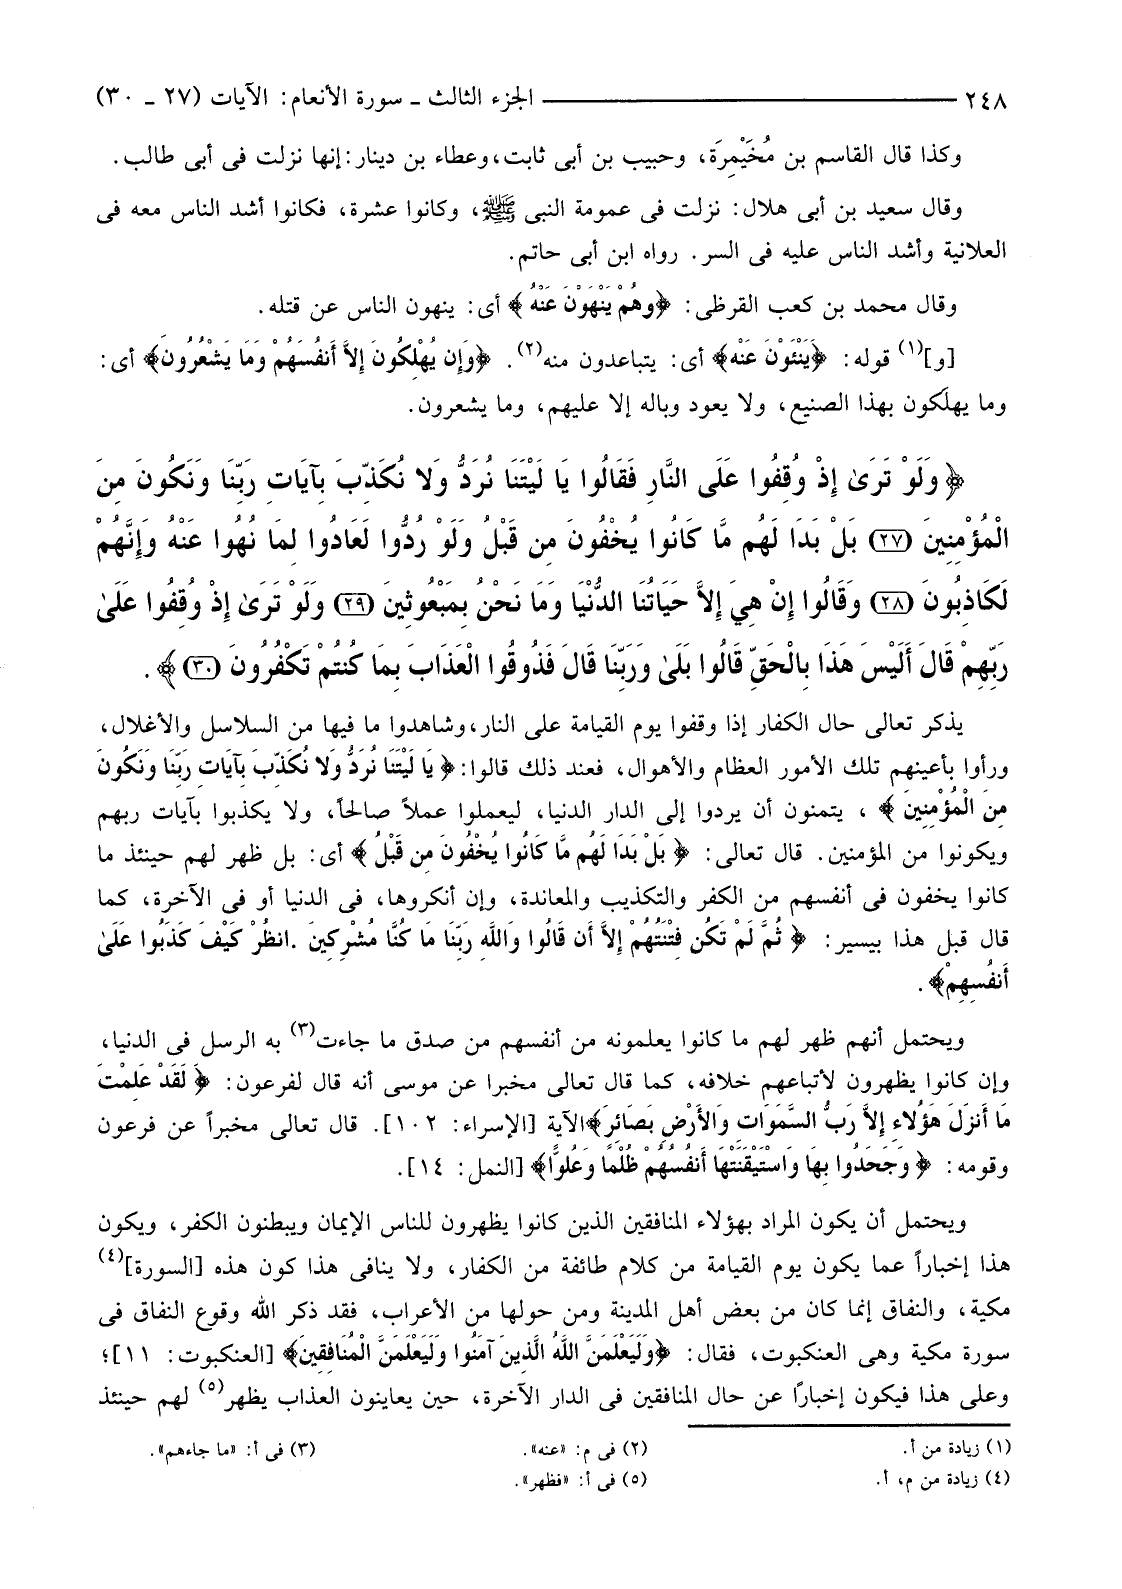 ٢٤٨ ـــــ الجزء الثالث ـ سورة الأنعام: الآيات (٢٧ ـ ٣٠)
وكذا قال القاسم بن مُخَيْمِرَة، وحبيب بن أبى ثابت، وعطاء بن دينار: إنها نزلت فى أبى طالب.
وقال سعيد بن أبى هلال: نزلت فى عمومة النبى ﷺ، وكانوا عشرة، فكانوا أشد الناس معه فى
العلانية وأشد الناس عليه فى السر. رواه ابن أبى حاتم.
وقال محمد بن كعب القرظى: ﴿وهُمْ يَنْهَوْنَ عَنْهُ﴾ أى: ينهون الناس عن قتله.
[و](١) قوله: ﴿يَنْئَوْنَ عَنْه﴾ أى: يتباعدون منه(٢). ﴿وَإِن يُهْلِكُونَ إِلاَّ أَنفُسَهُمْ وَمَا يَشْعُرُونَ﴾ أى:
وما يهلكون بهذا الصنيع، ولا يعود وباله إلا عليهم، وما يشعرون.
﴿وَلَوْ تَرَىٰ إِذْ وُقِفُوا عَلَى النَّارِ فَقَالُوا يَا لَيْتَنَا نُرَدُّ وَلا نُكَذِّبَ بِآيَاتِ رَبِّنَا وَنَكُونَ مِنَ
الْمُؤْمِنِينَ (٢٧) بَلْ بَدَا لَهُم مَّا كَانُوا يُخْفُونَ مِن قَبْلُ وَلَوْ رُدُّوا لَعَادُوا لِمَا نُهُوا عَنْهُ وَإِنَّهُمْ
لَكَاذِبُونَ (٢٨) وَقَالُوا إِنْ هِيَ إِلاَّ حَيَاتُنَا الدُّنْيَا وَمَا نَحْنُ بِمَبْعُوثِينَ (٢٩) وَلَوْ تَرَىٰ إِذْ وُقِفُوا عَلَىٰ
رَبِّهِمْ قَالَ أَلَيْسَ هَذَا بِالْحَقِّ قَالُوا بَلَىٰ وَرَبِّنَا قَالَ فَذُوقُوا الْعَذَابَ بِمَا كُنتُمْ تَكْفُرُونَ (٣٠)﴾.
يذكر تعالى حال الكفار إذا وقفوا يوم القيامة على النار، وشاهدوا ما فيها من السلاسل والأغلال،
ورأوا بأعينهم تلك الأمور العظام والأهوال، فعند ذلك قالوا: ﴿يَا لَيْتَنَا نُرَدُّ وَلا نُكَذِّبَ بِآيَاتِ رَبِّنَا وَنَكُونَ
مِنَ الْمُؤْمِنِينَ﴾ ، يتمنون أن يردوا إلى الدار الدنيا، ليعملوا عملاً صالحاً، ولا يكذبوا بآيات ربهم
ويكونوا من المؤمنين. قال تعالى: ﴿بَلْ بَدَا لَهُم مَّا كَانُوا يُخْفُونَ مِن قَبْلُ﴾ أى: بل ظهر لهم حينئذ ما
كانوا يخفون فى أنفسهم من الكفر والتكذيب والمعاندة، وإن أنكروها، فى الدنيا أو فى الآخرة، كما
قال قبل هذا بيسير: ﴿ثُمَّ لَمْ تَكُن فِتْنَتُهُمْ إِلاَّ أَن قَالُوا وَاللَّهِ رَبِّنَا مَا كُنَّا مُشْرِكِينَ .انظُرْ كَيْفَ كَذَبُوا عَلَىٰ
أَنفُسِهِمْ﴾.
ويحتمل أنهم ظهر لهم ما كانوا يعلمونه من أنفسهم من صدق ما جاءت(٣) به الرسل فى الدنيا،
وإن كانوا يظهرون لأتباعهم خلافه، كما قال تعالى مخبرا عن موسى أنه قال لفرعون: ﴿لَقَدْ عَلِمْتَ
مَا أَنزَلَ هَؤُلاءِ إِلاَّ رَبُّ السَّمَوَاتِ وَالأَرْضِ بَصَائِرَ﴾الآية [الإسراء: ١٠٢]. قال تعالى مخبراً عن فرعون
وقومه: ﴿وَجَحَدُوا بِهَا وَاسْتَيْقَنَتْهَا أَنفُسُهُمْ ظُلْمًا وَعُلُوًّا﴾ [النمل: ١٤].
ويحتمل أن يكون المراد بهؤلاء المنافقين الذين كانوا يظهرون للناس الإيمان ويبطنون الكفر، ويكون
هذا إخباراً عما يكون يوم القيامة من كلام طائفة من الكفار، ولا ينافى هذا كون هذه [السورة](٤)
مكية، والنفاق إنما كان من بعض أهل المدينة ومن حولها من الأعراب، فقد ذكر الله وقوع النفاق فى
سورة مكية وهى العنكبوت، فقال: ﴿وَلَيَعْلَمَنَّ اللَّهُ الَّذِينَ آمَنُوا وَلَيَعْلَمَنَّ الْمُنَافِقِينَ﴾ [العنكبوت: ١١]؛
وعلى هذا فيكون إخبارًا عن حال المنافقين فى الدار الآخرة، حين يعاينون العذاب يظهر(٥) لهم حينئذ
(١) زيادة من أ. (٢) فى م: «عنه». (٣) فى أ: «ما جاءهم».
(٤) زيادة من م، أ. (٥) فى أ: «فظهر».